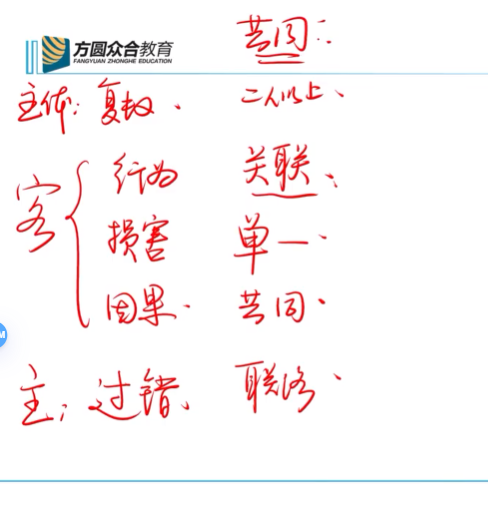 共同:
方圆众合教育
FANGYUAN ZHONGHE EDUCATION
主体:复数、 二人以上、
客 行为 关联、
损害 单一、
因果、 共同、
主:过错、 联络、